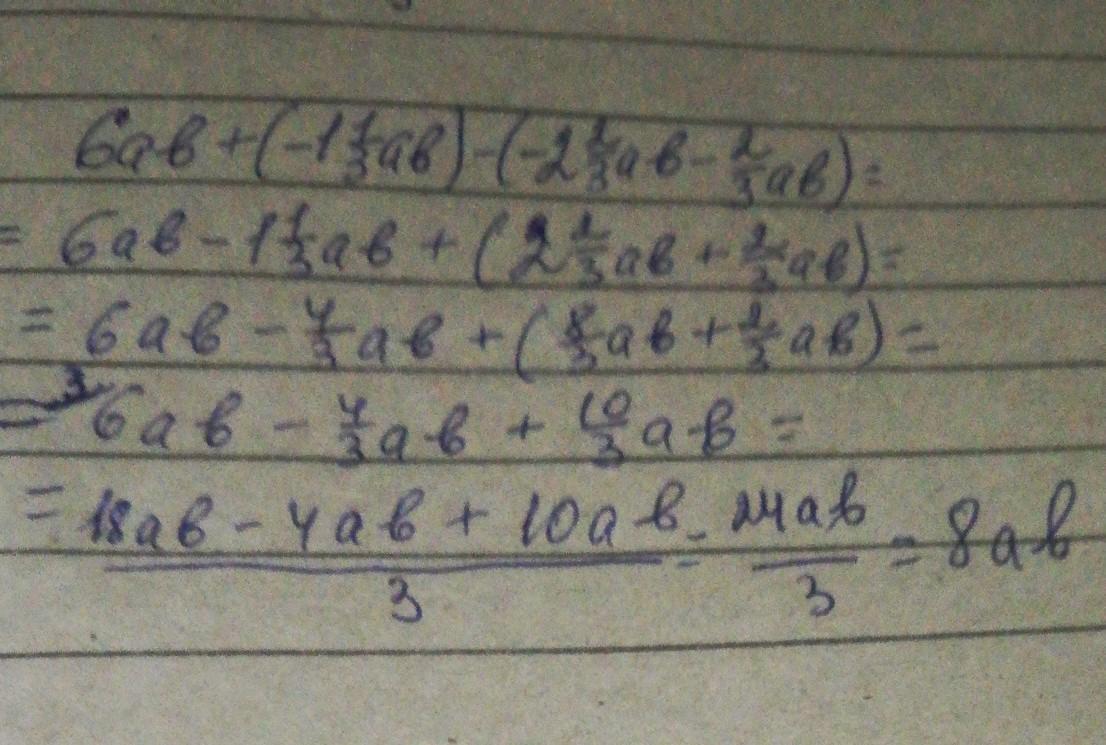 6ab + (-1 1/3 ab) - (-2 2/3 ab - 2/3 ab) =
= 6ab - 1 1/3 ab + (2 2/3 ab + 2/3 ab) =
= 6ab - 4/3 ab + (8/3 ab + 2/3 ab) =
= ³⁄ 6ab - 4/3 ab + 10/3 ab =
= (18ab - 4ab + 10ab)/3 = 24ab/3 = 8ab